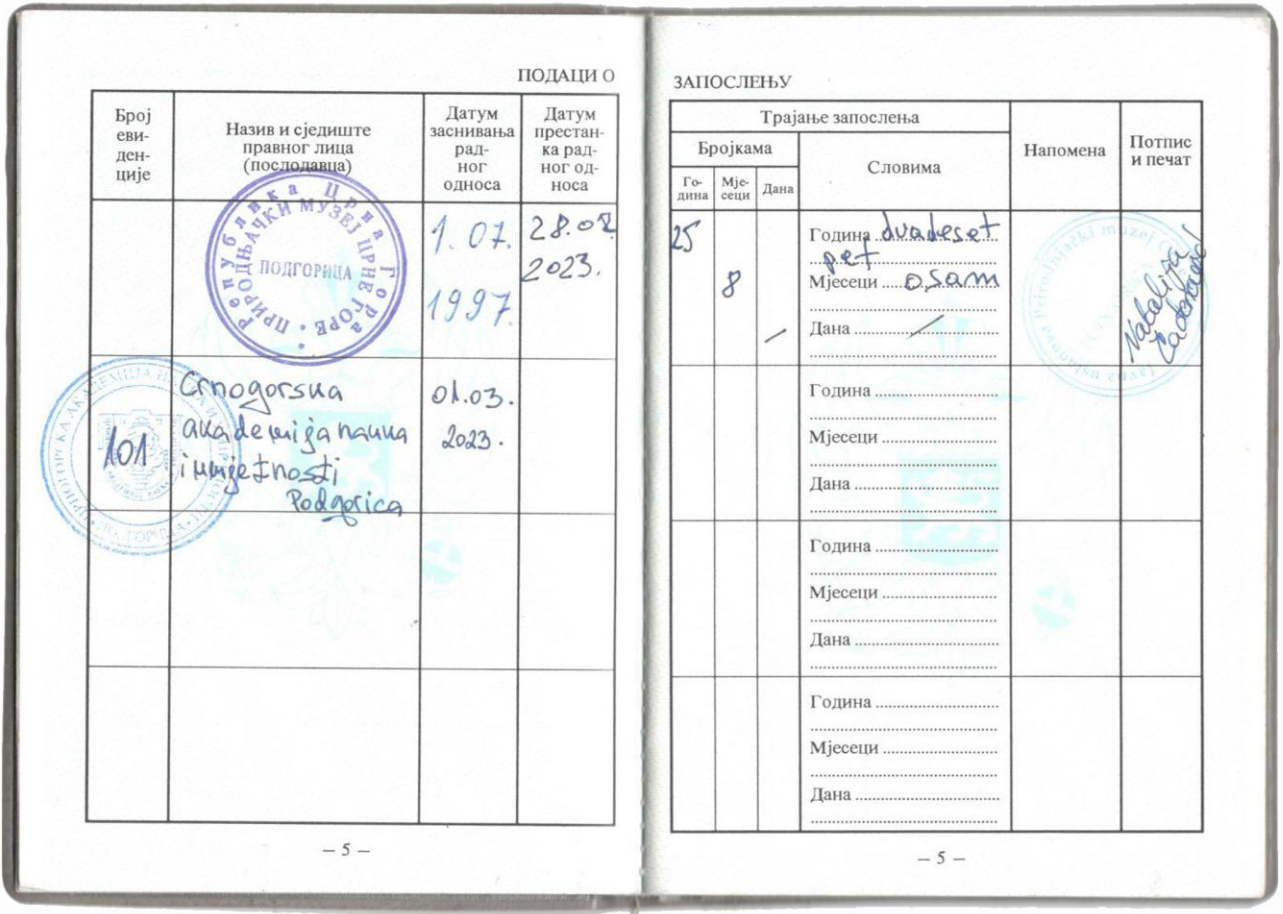 ПОДАЦИ О
Број
еви-
ден-
ције
Назив и сједиште
правног лица
(послодавца)
Датум
заснивања
рад-
ног
односа
Датум
престан-
ка рад-
ног од-
носа
Република Црна Гора
ПРИРОДЊАЧКИ МУЗЕЈ ЦРНЕ ГОРЕ
ПОДГОРИЦА
1. 07.
1997.
28.02.
2023.
101
Crnogorska
akademija nauka
i umjetnosti
Podgorica
01.03.
2023.
– 5 –
ЗАПОСЛЕЊУ
Трајање запослења
Бројкама
Го-
дина
Мје-
сеци
Дана
Словима
Напомена
Потпис
и печат
25
8
/
Година dvadeset
pet
Мјесеци osam
Дана /
Natalija
Година
Мјесеци
Дана
Година
Мјесеци
Дана
Година
Мјесеци
Дана
– 5 –